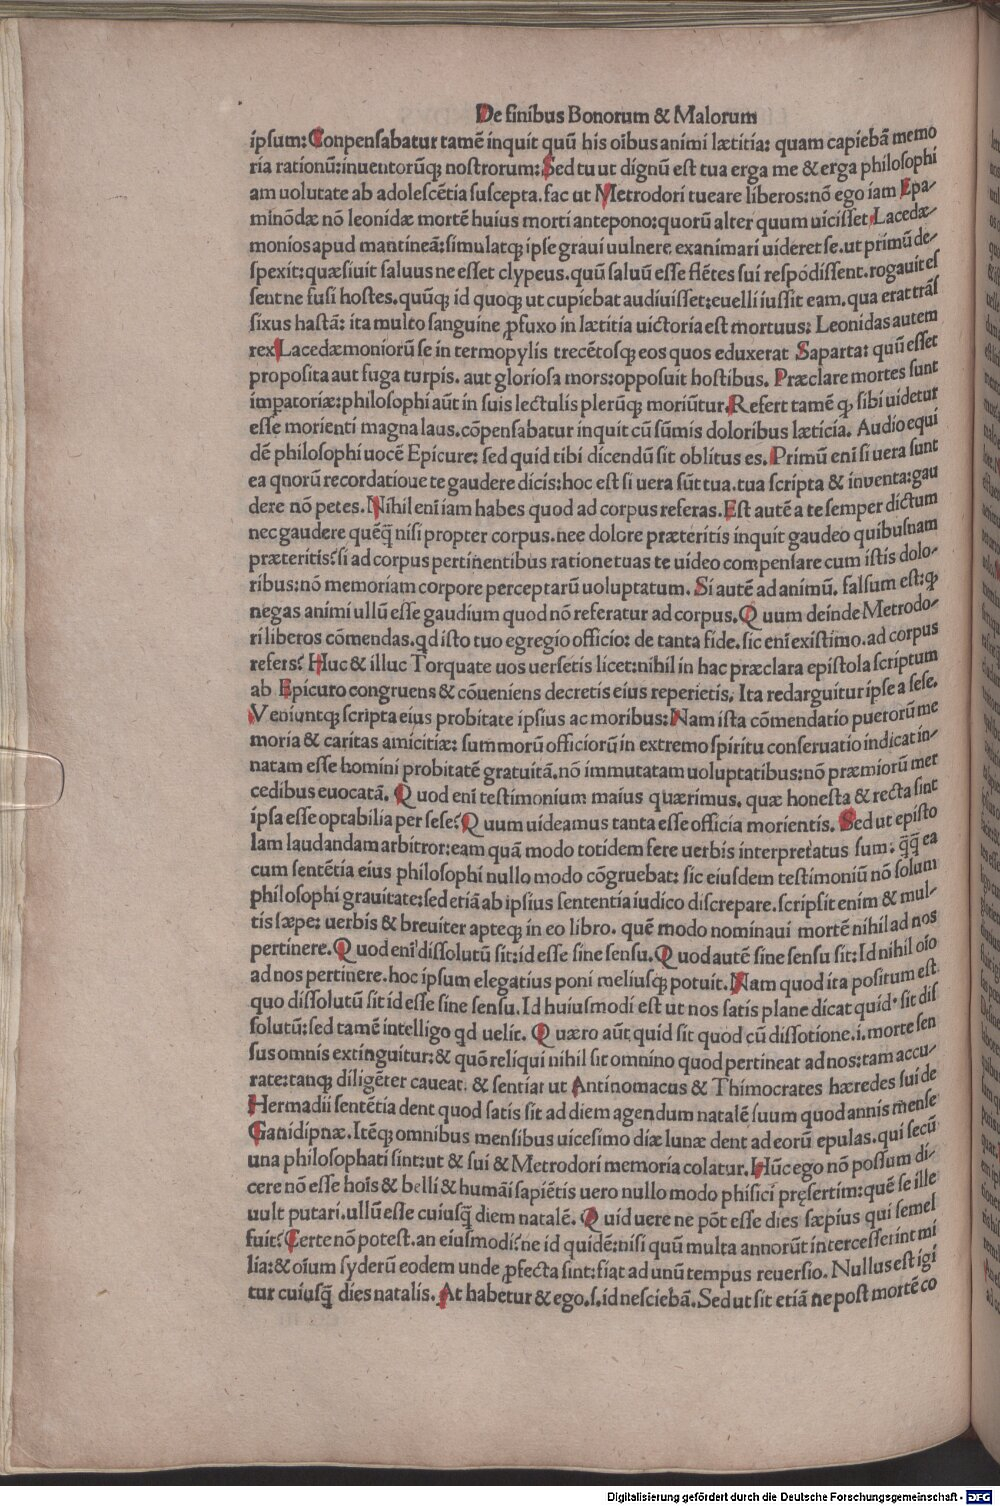 De finibus Bonorum & Malorum
ipſum: Conpenſabatur tamē inquit quū his oībus animi lætitia: quam capiebā memo
ria rationū: inuentorūq; noſtrorum: Sed tu ut dignū eſt tua erga me & erga philoſophi
am uolutate ab adoleſcētia ſuſcepta. fac ut Metrodori tueare liberos: nō ego iam Epa-
minōdæ nō leonidæ mortē huius morti antepono: quorū alter quum uiciſſet Lacedæ-
monios apud mantineā: ſimulatq; ipſe graui uulnere exanimari uideret ſe. ut primū de-
ſpexit: quæſiuit ſaluus ne eſſet clypeus. quū ſaluū eſſe flētes ſui reſpōdiſſent. rogauit eſ
ſent ne fuſi hoſtes. quūq; id quoq; ut cupiebat audiuiſſet: euelli iuſſit eam. qua erat trāſ
fixus haſtā: ita multo ſanguine ꝓfuxo in lætitia uictoria eſt mortuus: Leonidas autem
rex Lacedæmoniorū ſe in termopylis trecētoſq; eos quos eduxerat Saparta: quū eſſet
propoſita aut fuga turpis. aut glorioſa mors: oppoſuit hoſtibus. Præclare mortes ſunt
impatoriæ: philoſophi aūt in ſuis lectulis plerūq; moriūtur. Refert tamē ꝙ ſibi uidetur
eſſe morienti magna laus. cōpenſabatur inquit cū ſūmis doloribus læticia. Audio equi
dē philoſophi uocē Epicure: ſed quid tibi dicendū ſit oblitus es. Primū enī ſi uera ſunt
ea qnorū recordatioue te gaudere dicis: hoc eſt ſi uera ſūt tua. tua ſcripta & inuenta: gau
dere nō petes. Nihil enī iam habes quod ad corpus referas. Eſt autē a te ſemper dictum
nec gaudere quēq̄ niſi propter corpus. nee dolore præteritis inquit gaudeo quibuſnam
præteritis? ſi ad corpus pertinentibus ratione tuas te uideo compenſare cum iſtis dolo-
ribus: nō memoriam corpore perceptarū uoluptatum. Si autē ad animū. falſum eſt: ꝙ
negas animi ullū eſſe gaudium quod nō referatur ad corpus. Quum deinde Metrodo-
ri liberos cōmendas. qd iſto tuo egregio officio: de tanta fide. ſic enī exiſtimo. ad corpus
refers? Huc & illuc Torquate uos uerſetis licet: nihil in hac præclara epiſtola ſcriptum
ab Epicuro congruens & cōueniens decretis eius reperietis, Ita redarguitur ipſe a ſeſe.
Veniuntq; ſcripta eius probitate ipſius ac moribus: Nam iſta cōmendatio puerorū me
moria & caritas amicitiæ: ſummorū officiorū in extremo ſpiritu conſeruatio indicat in-
natam eſſe homini probitatē gratuitā. nō immutatam uoluptatibus: nō præmiorū mer
cedibus euocatā. Quod enī teſtimonium maius quærimus. quæ honeſta & recta ſint
ipſa eſſe optabilia per ſeſe? Quum uideamus tanta eſſe officia morientis. Sed ut epiſto
lam laudandam arbitror: eam quā modo totidem fere uerbis interpretatus ſum: q̄q̄ ea
cum ſentētia eius philoſophi nullo modo cōgruebat: ſic eiuſdem teſtimoniū nō ſolum
philoſophi grauitate: ſed etiā ab ipſius ſententia iudico diſcrepare. ſcripſit enim & mul-
tis ſæpe: uerbis & breuiter apteq; in eo libro. quē modo nominaui mortē nihil ad nos
pertinere. Quod enī diſſolutū ſit: id eſſe ſine ſenſu. Quod autē ſine ſenſu ſit: Id nihil oīo
ad nos pertinere. hoc ipſum elegatius poni meliuſq; potuit. Nam quod ita poſitum eſt
quo diſſolutū ſit id eſſe ſine ſenſu. Id huiuſmodi eſt ut nos ſatis plane dicat quid ſit diſ
ſolutū: ſed tamē intelligo qd uelit. Quæro aūt quid ſit quod cū diſſotione. i. morte ſen
ſus omnis extinguitur: & quō reliqui nihil ſit omnino quod pertineat ad nos: tam accu-
rate: tanq; diligēter caueat. & ſentiat ut Antinomacus & Thimocrates hæredes ſui de
Hermadii ſentētia dent quod ſatis ſit ad diem agendum natalē ſuum quod annis mēnſe
Ganidipnæ. Itēq; omnibus menſibus uiceſimo diæ lunæ dent ad eorū epulas. qui ſecū
una philoſophati ſint: ut & ſui & Metrodori memoria colatur. Hūc ego nō poſſum di-
cere nō eſſe hoīs & belli & humāi ſapiētis uero nullo modo phiſici pręſertim: quē ſe ille
uult putari. ullū eſſe cuiuſq̄ diem natalē. Quid uere ne pōt eſſe dies ſæpius qui ſemel
fuit? Certe nō poteſt. an eiuſmodi? ne id quidē: niſi quū multa annorū intercesſerint mi
lia: & oīum ſyderū eodem unde ꝓfecta ſint: fiat ad unū tempus reuerſio. Nullus eſt igi
tur cuiuſq̄ dies natalis. At habetur & ego. ſ. id neſciebā. Sed ut ſit etiā ne poſt mortē co
Digitalisierung gefördert durch die Deutsche Forschungsgemeinschaft - DFG